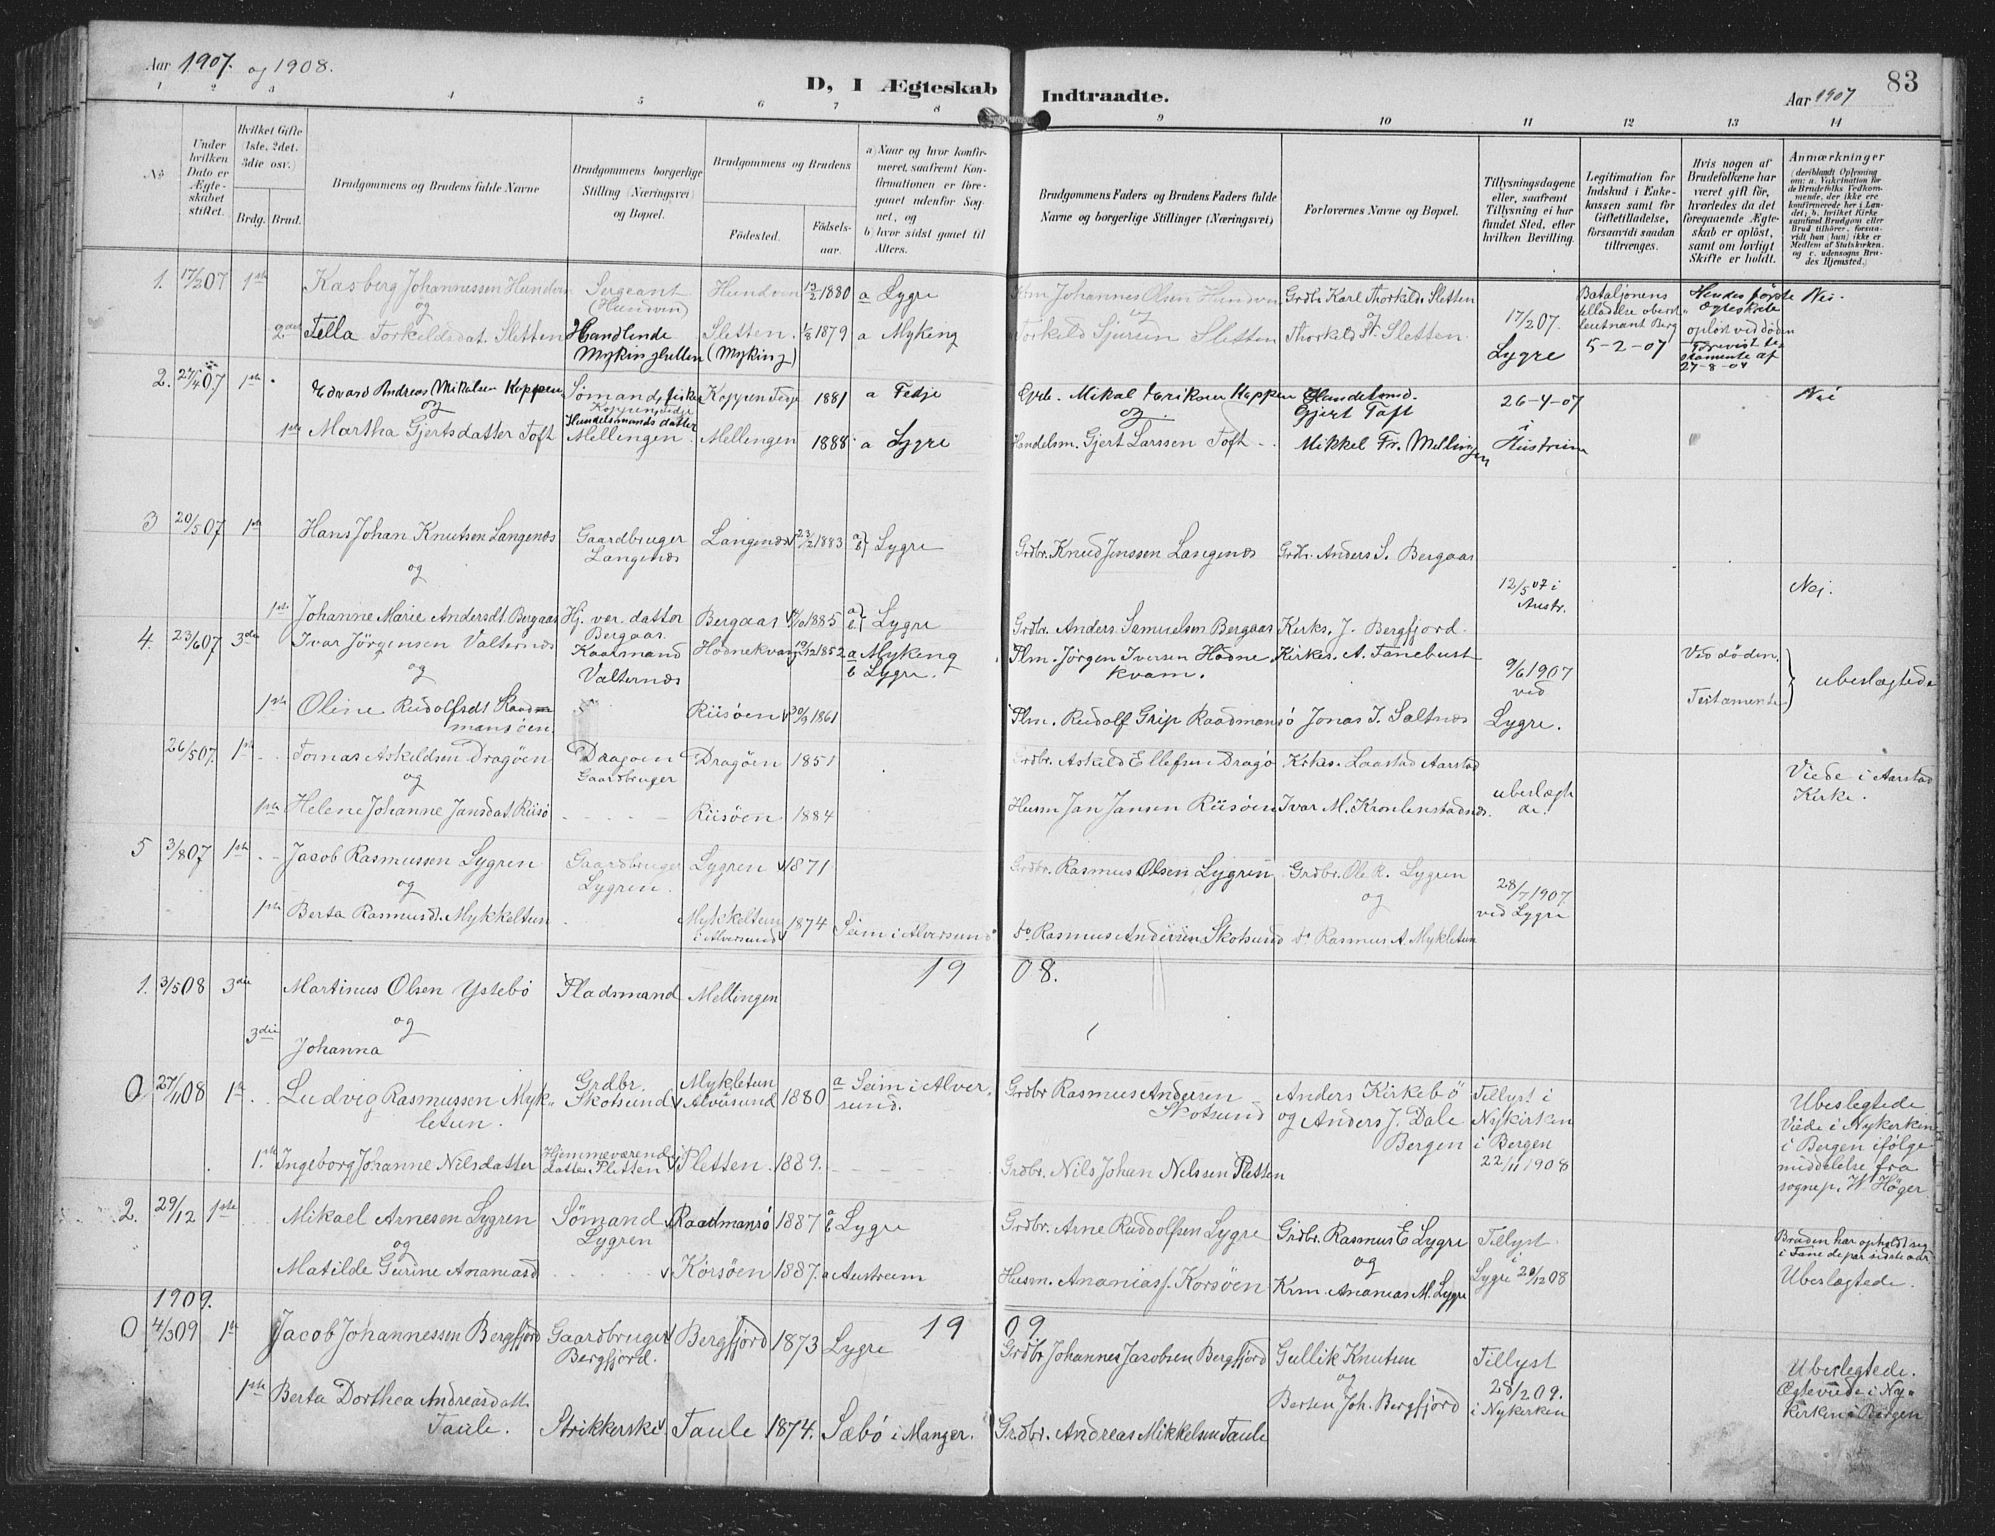 Aar 1907. og 1908.
D, I Ægteskab Indtraadte.
Aar 1907
83
1 2 3 4 5 6 7 8 9 10 11 12 13 14
No
Under hvilken Dato er Ægteskabet stiftet.
Hvilket Gifte (1ste, 2det. 3die osv.)
Brdg. Brud.
Brudgommens og Brudens fulde Navne
Brudgommens borgerlige Stilling (Næringsvei) og Bopæl.
Brudgommens og Brudens
Fødested. Fødselsaar.
a) Naar og hvor konfirmeret, saafremt Konfirmationen er foregaaet udenfor Sognet, og
b) hvor sidst gaaet til Alters.
Brudgommens Faders og Brudens Faders fulde Navne og borgerlige Stillinger (Næringsvei)
Forlovernes Navne og Bopæl.
Tillysningsdagene eller, saafremt Tillysning ei har fundet Sted, efter hvilken Bevilling.
Legitimation for Indskud i Enkekassen samt for Giftetilladelse, forsaavidt saadan tiltrænges.
Hvis nogen af Brudefolkene har været gift før, hvorledes da det foregaaende Ægteskab er opløst, samt om lovligt Skifte er holdt.
Anmærkninger (deriblandt Oplysning om: a. Vakcination for de Brudefolks Vedkommende, der ikke er konfirmerede her i Landet; b. hvilket Kirkesamfund Brudgom eller Brud tilhører, forsaavidt han (hun) ikke er Medlem af Statskirken. og c. udensogns Brudes Hjemsted.)
1. 17/2 07 1ste Kasberg Johannessen Hundven Sergeant (Hundvin) Hundven 13/2 1880 a Lygre Krm Johannes Olsen Hundven Grdb. Karl Thorkilds. Sletten
og
2den Tella Torkildsdat. Sletten Handlende Mykingsletten Sletten (Myking) 1/8 1879 a Mykeng Torkild Sjursen Sletten Thorkild T. Sletten
17/2 07. Lygre
Bataljonens tilladelse oberstleutnant Berg 5-2-07
Hendes første Ægteskab opløst ved døden
Forevist testamente af 27-8-04
Nei.
2. 27/4 07 1ste Edvard Andreas Mikalsen Koppen Sømand, fisker Koppen, Fedje Koppen Fedje 1881 a Fedje Grb. Mikal Eriksen Koppen Handelsmd. Gjert Toft 26-4-07 Nei
og
1ste Martha Gjertsdatter Toft Handelsmands datter Mellingen. Mellingen 1888 a Lygre Handelsm. Gjert Larssen Toft Mikkel Fr. Mellingen i Austrum
3 20/5 07 1ste Hans Johan Knutsen Langenæs Gaardbruger Langenæs Langenæs 23/2 1883 a) b) Lygre Grdbr. Knud Jenssen Langenæs Grdb. Anders S. Bergaas
og
12/5 07 i Austr. Nej.
1ste Johanne Marie Andersdt. Bergaas Hj. ver. datter Bergaas. Bergaas 1885 a) b) Lygre Grdbr. Anders Samuelsen Bergaas Kirks. J. Bergfjord.
4. 23/6 07 3die Ivar Jörgensen Valternæs Kaarmand Valternæs Hodnekvam 19/12 1852 a Mykeng b Lygre. Plm. Jörgen Iversen Hodnekvam. Kirkes. A. Tanebust 9/6 1907 ved Lygre. Ved döden. Testamente ubeslægtede
og
1ste Oline Rudolfsdt. Raadmansöen. Riisöen 30/9 1861 Plm. Rudolf Grip Raadmansö Jonas J. Saltnæs
26/5 07. 1ste Tomas Askeldsen Dragöen Dragoen Gaardbruger Dragöen 1851 Grdbr. Askild Ellefsen Dragö Kirkes. Laastad Aarstad
og
ubeslægtde. Viede i Aarstad Kirke.
1ste Helene Johanne Jansdat. Riisö Riisöen 1884 Husm Jan Jansen Riisöen Ivar M. Kronlenstadnæs.
5 3/8 07 1ste Jacob Rasmussen Lygren Gaardbruger Lygren. Lygren 1871 Grdbr. Rasmus Olsen Lygren Grdbr. Ole R. Lygren
og og
28/7 1907. ved Lygre
1ste Berta Rasmusd. Mykkeltun Mykkeltun i Alversund 1874 Seim i Alversund do. Rasmus Andersen Skotsund do. Rasmus A. Mykletun
1908.
1. 3/5 08 3die Martinus Olsen Ystebö Pladsmand Mellingen
og
3die Johanna
0 27/11 08 1ste Ludvig Rasmussen Mykletun. Grdbr. Skotsund Mykletun Alversund 1880 a Seim i Alversund. Grdbr Rasmus Andersen Skotsund Anders Kirkebö og Anders J. Dale Bergen Tillyst i Nykirken i Bergen 22/11 1908
Ubeslegtede Viede i Nykerken i Bergen ifölge middelelse fra sognep. W. Höger
1ste Ingeborg Johanne Nilsdatter Hjemmeværende datter Pletten Pletten. 1889. Grdbr. Nils Johan Nilssen Pletten
2. 29/12 1ste Mikael Arnesen Lygren Sömand Lygren Raadmansö 1887 a b Lygre Grdbr. Arne Ruddolfsen Lygre Grdbr. Rasmus E Lygre Tillyst i Lygre 20/12 08
og og
Bruden har opholdt seg i Fane de par sidste aar Ubeslægtede.
Matilde Gurine Ananiasd Korsöen 1887. a Austrum Husm. Ananias J. Korsöen Krm. Ananias M. Lygre
1909.
1909
0 4/3 09 1ste Jacob Johannessen Bergfjord Gaardbruger Bergfjord. Bergfjord 1873 Lygre Grdbr Johannes Jacobsen Bergfjord Gullik Knutsen Tillyst 28/2 09. i Nykerken
og
Ubeslegtede. Ægteviede i Nykirken i Bergen
1ste Berta Dorthea Andreasdatt. Taule. Strikkerske Taule 1874. Sæbö i Manger. Grdbr. Andreas Mikkelsen Taule Bertin Joh. Bergfjord